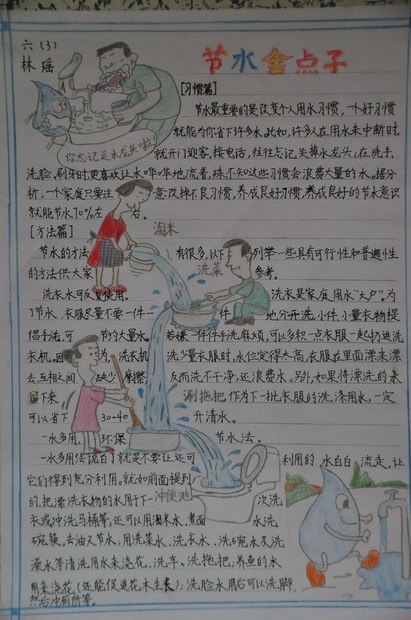 六（3）
林瑶
节水金点子
[习惯篇]
节水最重要的是改变个人用水习惯，一个好习惯
就能为你省下许多水。比如，许多人在用水未中断时
就开门迎客、接电话，往往忘记关掉水龙头；在洗手、
你忘记关水龙头啦！
洗脸、刷牙时更喜欢让水哗哗地流着，殊不知这些习惯会浪费大量的水。据分
析，一个家庭只要注意改掉不良习惯，养成良好习惯，养成良好的节水意识
就能节水70%左右。
[方法篇]
淘米
节水的方法有很多，以下列举一些具有可行性和普遍性
的方法供大家参考。
洗菜
洗衣水可反复使用。洗衣是家庭用水“大户”，为
了节水，衣服尽量不要一件一件地分开洗，小件、小量衣物提
倡手洗，可节约大量水。若嫌一件件手洗麻烦，可以多积一点衣服一起扔进洗
衣机。因为，洗衣机洗少量衣服时，水位定得太高，衣服在里面漂来漂
去，互相之间缺少摩擦，反而洗不干净，还浪费水。另外，如果将漂洗的水
留下来
涮拖把
作为下一批衣服的洗涤用水，一定
可以省下30-40升清水。
一水多用，环保节水法。
一水多用法说白了就是不要让还可利用的水白白流走，让
它们得到充分利用。就如前面提到
的，把漂洗衣物的水用于下一次洗
冲便池
衣或冲洗马桶等，还可以用淘米水、煮面水洗
碗筷，去油又节水，用洗菜水、洗衣水、洗碗水及洗
澡水等清洗用水来浇花、洗车、洗拖把；养鱼的水
用来浇花（还能促进花木生长）；洗脸水用后可以洗脚，
然后冲厕所等。